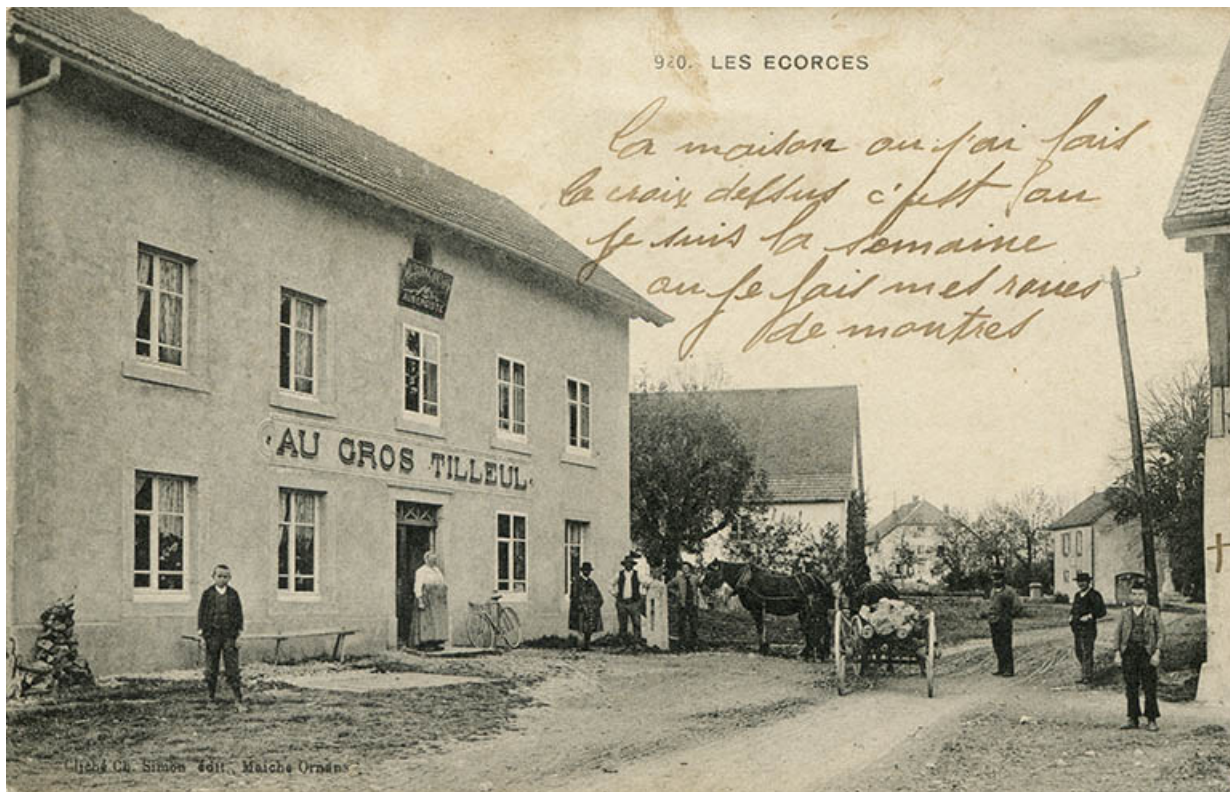 920. LES ECORCES
La maison ou j'ai fais
la croix dessus c'est ou
je suis la semaine
ou je fais mes roues
de montres
AU GROS TILLEUL
Cliché Ch. Simon édit., Maiche Ornans